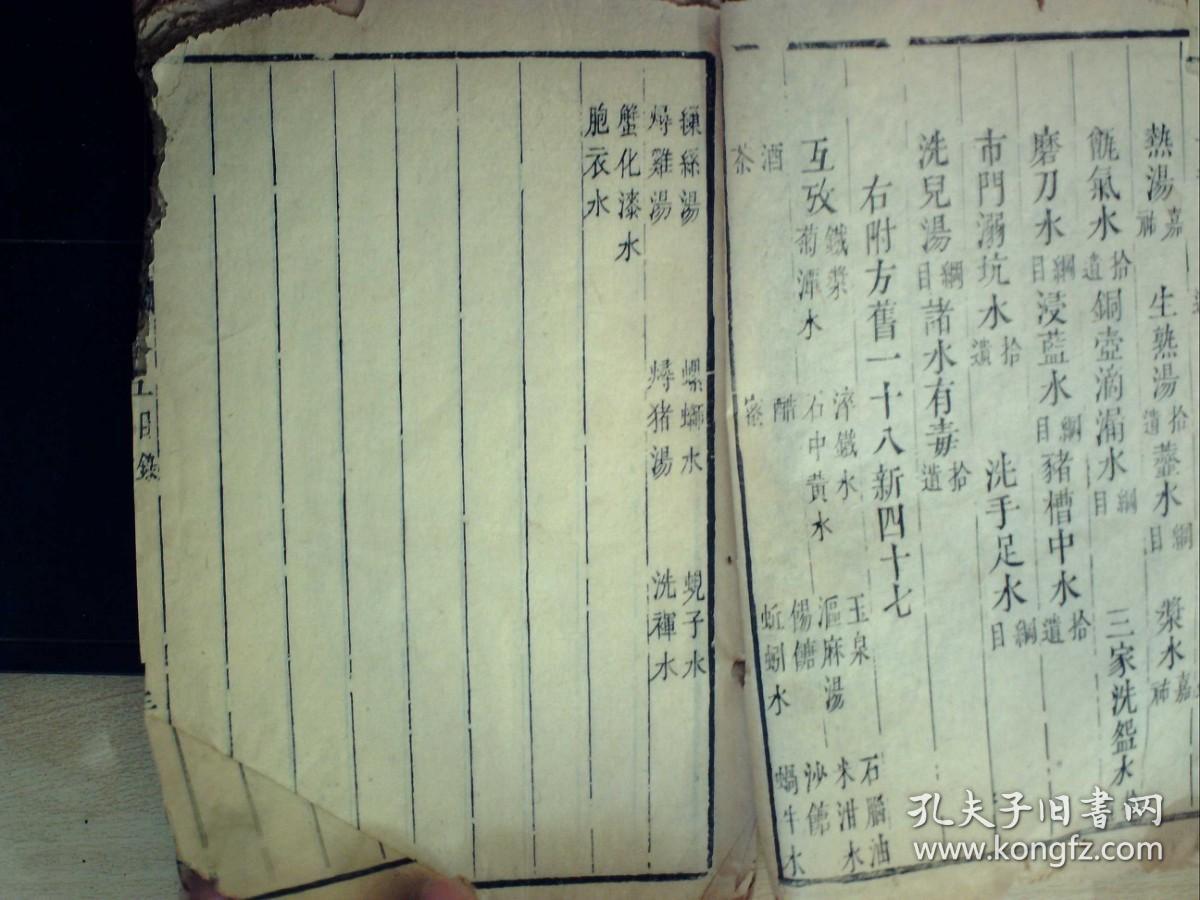 熱湯嘉祐 生熟湯拾遺 虀水綱目 漿水嘉祐
甑氣水拾遺 銅壺滴漏水綱目 三家洗盌水
磨刀水綱目 浸藍水綱目 豬槽中水拾遺
市門溺坑水拾遺 洗手足水綱目
洗兒湯綱目 諸水有毒拾遺
右附方舊一十八新四十七
互攷 鐵漿 淬鐵水 玉泉 石腦油
菊潭水 石中黃水 漚麻湯 米泔水
酒 醋 餳餹 沙餹
茶 蜜 蚯蚓水 蝸牛水
練絲湯 螺螄水 蜆子水
燖雞湯 燖猪湯 洗褌水
蟹化漆水
胞衣水
目錄
孔夫子旧书网
www.kongfz.com